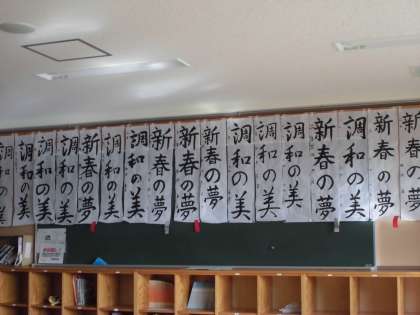 新春の夢
新春の夢
調和の美
新春の夢
調和の美
調和の美
調和の美
新春の夢
新春の夢
新春の夢
調和の美
調和の美
新春の夢
調和の美
調和の美
調和の美
調和の美